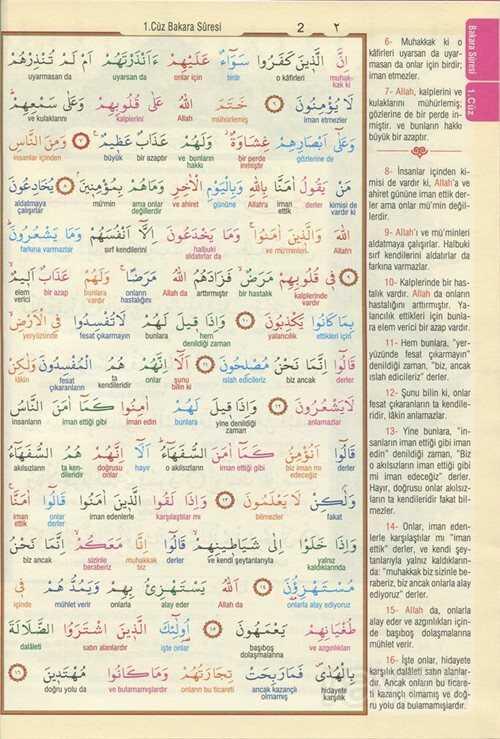 1.Cüz Bakara Sûresi 2 ٢
إِنَّ الَّذِينَ كَفَرُوا سَوَاءٌ عَلَيْهِمْ ءَاَنْذَرْتَهُمْ اَمْ لَمْ تُنْذِرْهُمْ
muhakkak ki o kâfirleri birdir onlar için uyarsan da uyarmasan da
لَا يُؤْمِنُونَ ٦ خَتَمَ اللّٰهُ عَلٰى قُلُوبِهِمْ وَعَلٰى سَمْعِهِمْ
iman etmezler mühürlemiş Allah kalplerini ve kulaklarını
وَعَلٰى اَبْصَارِهِمْ غِشَاوَةٌ وَلَهُمْ عَذَابٌ عَظِيمٌ ٧ وَمِنَ النَّاسِ
gözlerine de bir perde inmiştir ve bunların hakkı bir azaptır büyük insanlar içinden
مَنْ يَقُولُ اٰمَنَّا بِاللّٰهِ وَبِالْيَوْمِ الْاٰخِرِ وَمَاهُمْ بِمُؤْمِنِينَ ٨ يُخَادِعُونَ
kimisi de vardır ki derler iman ettik Allah'a gününe ve ahiret ama onlar değillerdir mü'min aldatmaya çalışırlar
اللّٰهَ وَالَّذِينَ اٰمَنُوا وَمَا يَخْدَعُونَ اِلَّا اَنْفُسَهُمْ وَمَا يَشْعُرُونَ
Allah'ı ve mü'minleri halbuki aldatırlar da sırf kendilerini farkına varmazlar
٩ فِى قُلُوبِهِمْ مَرَضٌ فَزَادَهُمُ اللّٰهُ مَرَضًا وَلَهُمْ عَذَابٌ اَلِيمٌ
kalplerinde vardır bir hastalık arttırmıştır Allah da onların hastalığını bunlara vardır bir azap elem verici
بِمَا كَانُوا يَكْذِبُونَ ١٠ وَاِذَا قِيلَ لَهُمْ لَاتُفْسِدُوا فِى الْاَرْضِ
ettikleri için yalancılık hem denildiği zaman bunlara fesat çıkarmayın yeryüzünde
قَالُوا اِنَّمَا نَحْنُ مُصْلِحُونَ ١١ اَلَا اِنَّهُمْ هُمُ الْمُفْسِدُونَ وَلٰكِنْ
derler biz ancak ıslah edicileriz şunu bilin ki onlar ta kendileri fesat çıkaranların lâkin
لَايَشْعُرُونَ ١٢ وَاِذَا قِيلَ لَهُمْ اٰمِنُوا كَمَا اٰمَنَ النَّاسُ
anlamazlar yine denildiği zaman bunlara iman edin iman ettiği gibi insanların
قَالُوا اَنُؤْمِنُ كَمَا اٰمَنَ السُّفَهَاءُ اَلَا اِنَّهُمْ هُمُ السُّفَهَاءُ
derler biz iman mı edeceğiz iman ettiği gibi o akılsızların hayır doğrusu onlar ta kendileridir akılsızların
وَلٰكِنْ لَايَعْلَمُونَ ١٣ وَاِذَا لَقُوا الَّذِينَ اٰمَنُوا قَالُوا اٰمَنَّا
fakat bilmezler karşılaştılar mı iman edenlerle onlar derler iman ettik
وَاِذَا خَلَوْا اِلٰى شَيَاطِينِهِمْ قَالُوا اِنَّا مَعَكُمْ اِنَّمَا نَحْنُ
yalnız kaldıklarında ve kendi şeytanlarıyla derler muhakkak biz sizinle beraberiz biz ancak
مُسْتَهْزِؤُنَ ١٤ اَللّٰهُ يَسْتَهْزِئُ بِهِمْ وَيَمُدُّهُمْ فِى
onlarla alay ediyoruz Allah da alay eder onlarla mühlet verir içinde
طُغْيَانِهِمْ يَعْمَهُونَ ١٥ اُولٰئِكَ الَّذِينَ اشْتَرَوُا الضَّلَالَةَ
ve azgınlıkları başıboş dolaşmalarına işte onlar satın alanlardır dalâleti
بِالْهُدٰى فَمَارَبِحَتْ تِجَارَتُهُمْ وَمَاكَانُوا مُهْتَدِينَ ١٦
hidayete karşılık ancak kazançlı olmamış onların bu ticareti ve bulamamışlardır doğru yolu da
Bakara Sûresi
1.Cüz
6- Muhakkak ki o
kâfirleri uyarsan da uyar-
masan da onlar için birdir;
iman etmezler.
7- Allah, kalplerini ve
kulaklarını mühürlemiş;
gözlerine de bir perde in-
miştir. ve bunların hakkı
büyük bir azaptır.
8- İnsanlar içinden ki-
misi de vardır ki, Allah'a ve
ahiret gününe iman ettik der-
ler ama onlar mü'min değil-
lerdir.
9- Allah'ı ve mü'minleri
aldatmaya çalışırlar. Halbuki
sırf kendilerini aldatırlar da
farkına varmazlar.
10- Kalplerinde bir has-
talık vardır. Allah da onların
hastalığını arttırmıştır. Ya-
lancılık ettikleri için bunla-
ra elem verici bir azap vardır.
11- Hem bunlara, "yer-
yüzünde fesat çıkarmayın"
denildiği zaman, "biz, ancak
ıslah edicileriz" derler.
12- Şunu bilin ki, onlar
fesat çıkaranların ta kendile-
ridir, lâkin anlamazlar.
13- Yine bunlara, "in-
sanların iman ettiği gibi iman
edin" denildiği zaman, "Biz
o akılsızların iman ettiği gibi
mi iman edeceğiz" derler.
Hayır, doğrusu onlar akılsız-
ların ta kendileridir fakat bil-
mezler.
14- Onlar, iman eden-
lerle karşılaştılar mı "iman
ettik" derler, ve kendi şey-
tanlarıyla yalnız kaldıkların-
da: "muhakkak biz sizinle be-
raberiz, biz ancak onlarla alay
ediyoruz" derler.
15- Allah da, onlarla
alay eder ve azgınlıkları için-
de başıboş dolaşmalarına
mühlet verir.
16- İşte onlar, hidayete
karşılık dalâleti satın alanlar-
dır. Ancak onların bu ticare-
ti kazançlı olmamış ve doğ-
ru yolu da bulamamışlardır.